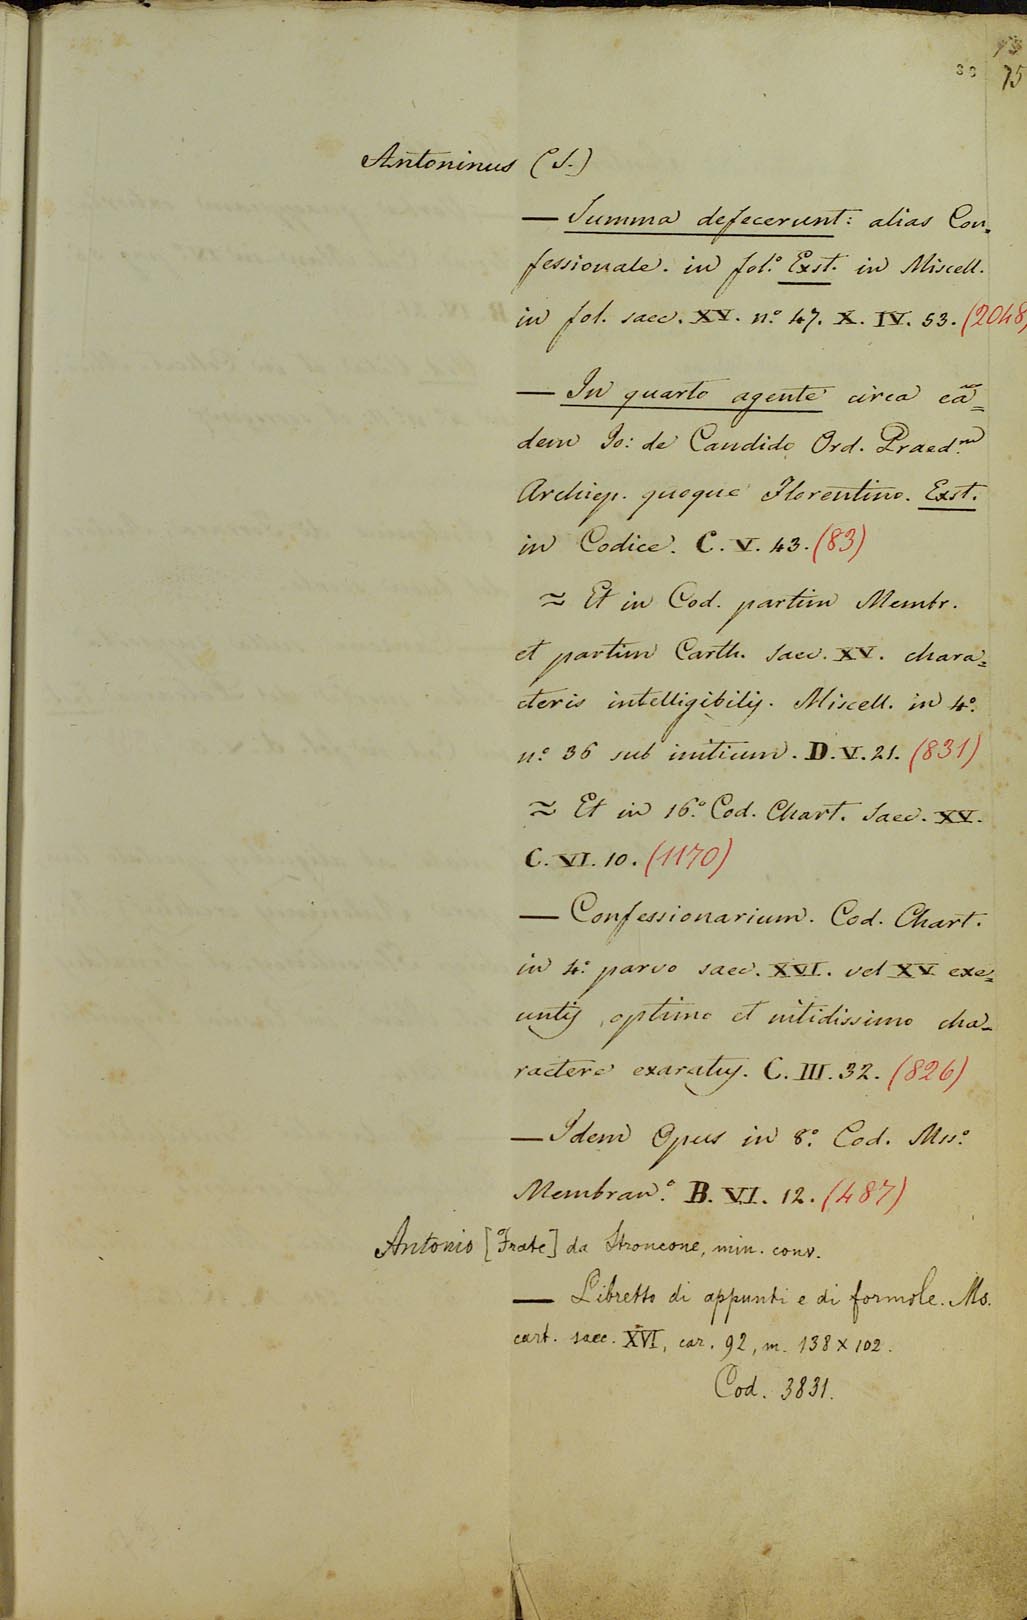 75
Antoninus (S.)
— Summa defecerunt: alias Con-
fessionale. in fol.° Exst. in Miscell.
in fol. saec. XV. n.° 47. X. IV. 53. (2048)
— In quarto agente circa eã=
dem Jo: de Candido Ord. Praed.m
Archiep. quoque Florentino. Exst.
in Codice. C. V. 43. (83)
≈ Et in Cod. partim Membr.
et partim Carth. saec. XV. chara=
cteris intelligibilij. Miscell. in 4.°
n.° 36 sub initium. D. V. 21. (831)
≈ Et in 16.° Cod. Chart. saec. XV.
C. VI. 10. (1170)
— Confessionarium. Cod. Chart.
in 4.° parvo saec. XVI. vel XV exe=
untij, optimo et nitidissimo cha-
ractere exaratuj. C. III. 32. (826)
— Idem Opus in 8.° Cod. Mss.°
Membran.° B. VI. 12. (487)
Antonio [Frate] da Stroncone, min. conv.
— Libretto di appunti e di formole. Ms.
cart. saec. XVI, car. 92, m. 138 x 102.
Cod. 3831.